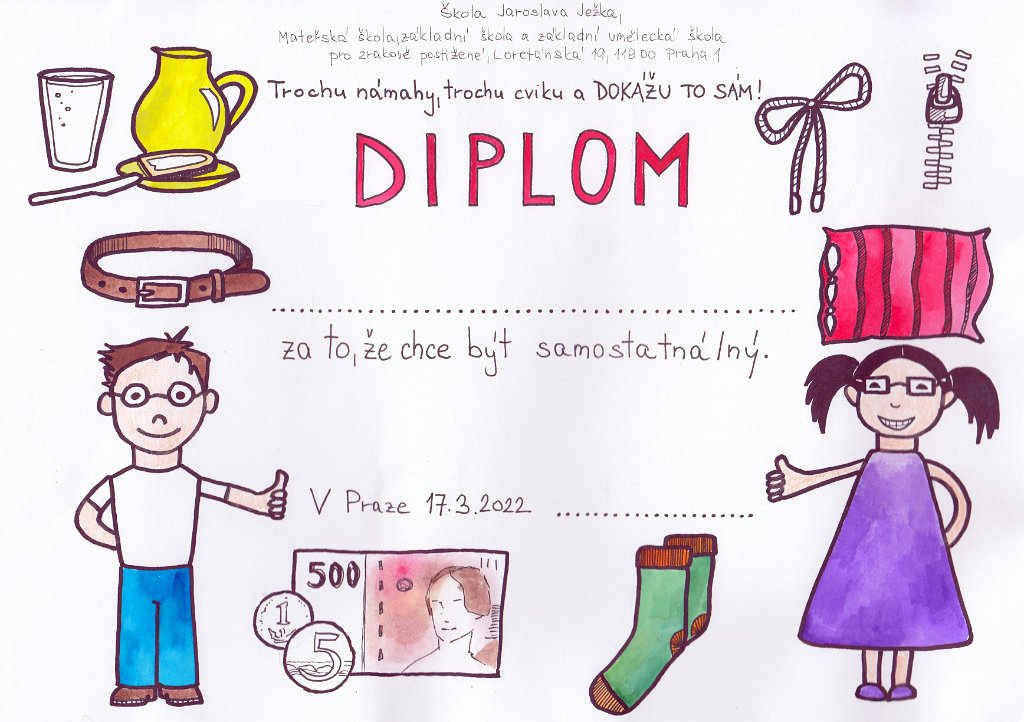 Škola Jaroslava Ježka,
Mateřská škola, základní škola a základní umělecká škola
pro zrakově postižené, Loretánská 19, 118 00 Praha 1
Trochu námahy, trochu cviku a DOKÁŽU TO SÁM!
DIPLOM
za to, že chce být samostatná/ný.
V Praze 17.3.2022
500
1
5